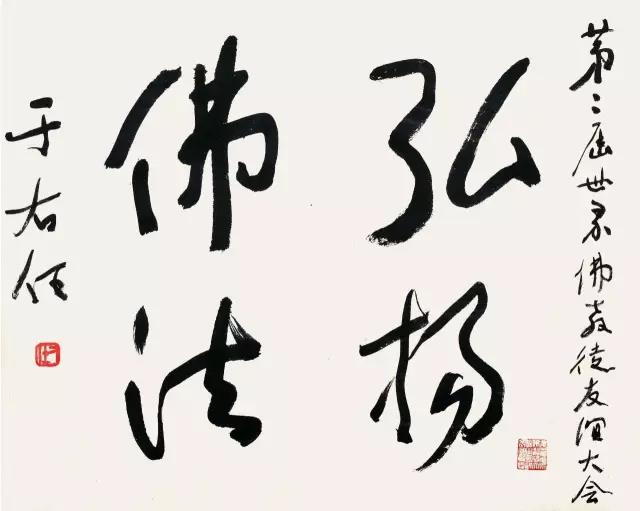 第二屆世界佛教徒友誼大会
弘揚
佛法
于右任